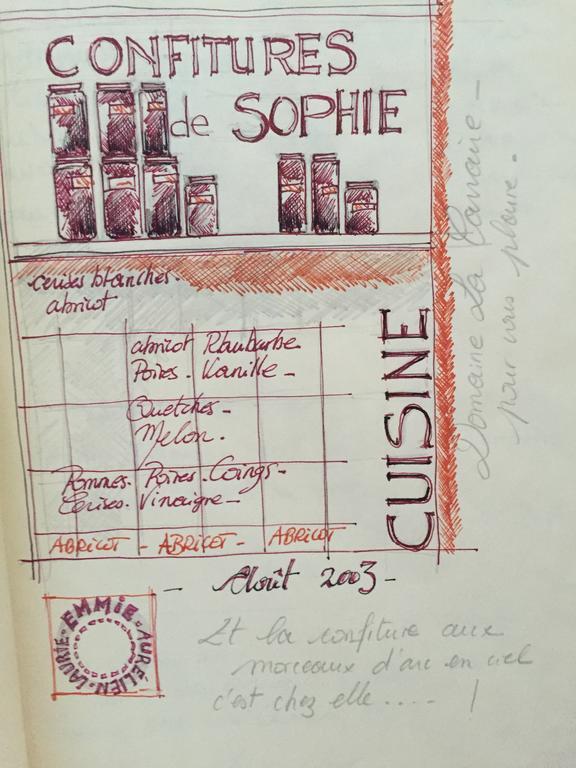 CONFITURES
de SOPHIE
cerises blanches.
abricot
abricot Rhubarbe
Poires. Vanille -
Quetches -
Melon.
Pommes. Poires. Coings -
Cerises. Vinaigre -
ABRICOT - ABRICOT - ABRICOT
CUISINE
Domaine La
pour vous plaire.
- Août 2003 -
EMMIE · AURELIEN · LAURIE ·
Et la confiture aux
morceaux d'arc en ciel
c'est chez elle .... !